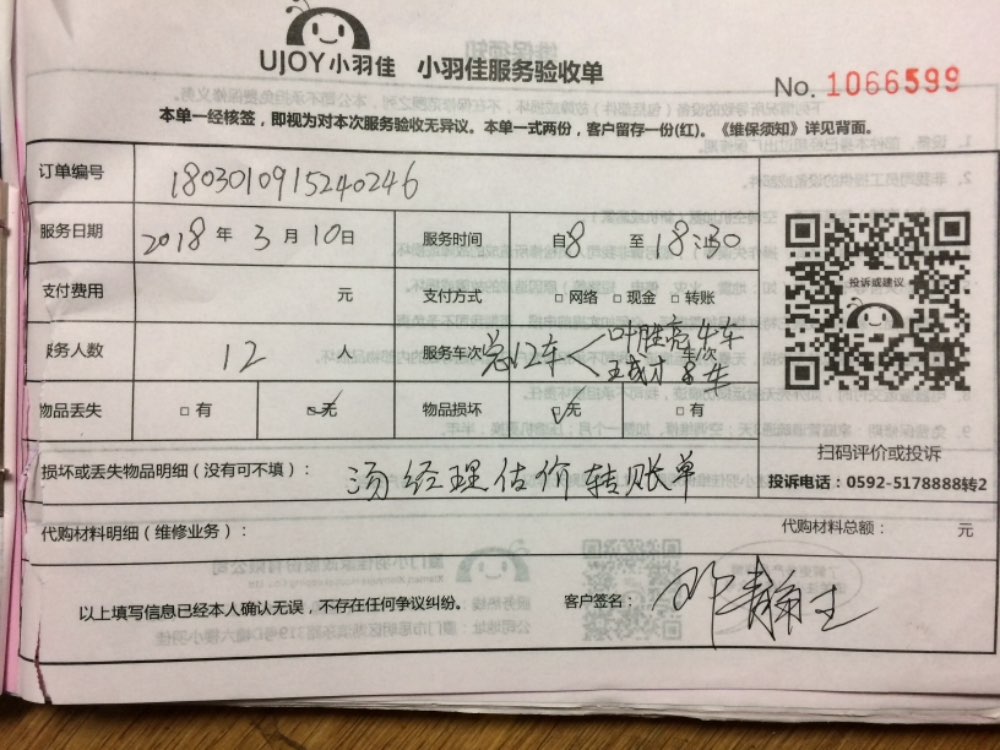 UJOY小羽佳 小羽佳服务验收单
No. 1066599
本单一经核签，即视为对本次服务验收无异议。本单一式两份，客户留存一份(红)。《维保须知》详见背面。
订单编号 1803010915240246
服务日期 2018 年 3 月 10 日 服务时间 自8 至 18:30
支付费用 元 支付方式 □ 网络 □ 现金 □ 转账
投诉或建议
服务人数 12 人 服务车次 总12车 车/次
叶胜亮 4车
8车
物品丢失 □ 有 ☑ 无 物品损坏 ☑ 无 □ 有
扫码评价或投诉
投诉电话：0592-5178888转2
损坏或丢失物品明细（没有可不填）： 汤经理估价转账单
代购材料明细（维修业务）： 代购材料总额： 元
以上填写信息已经本人确认无误，不存在任何争议纠纷。 客户签名：